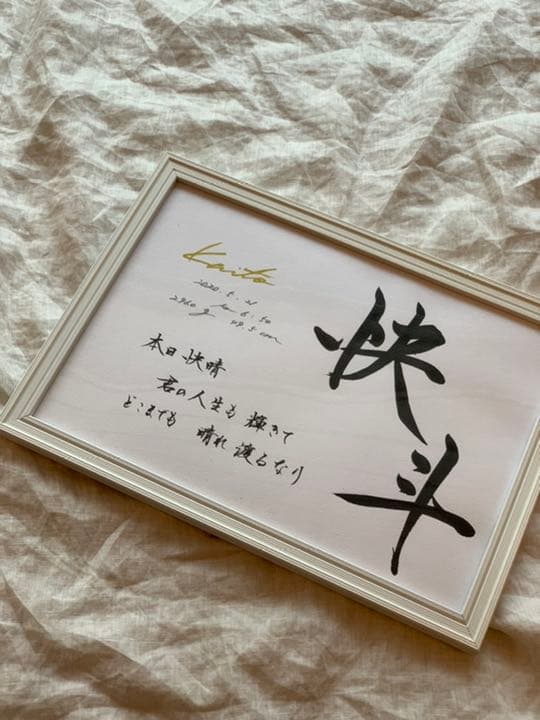 快斗
Kaito
2020.5.21
am 6:50
2960g 49.5cm
本日 快晴
君の人生も 輝きて
どこまでも 晴れ渡るなり